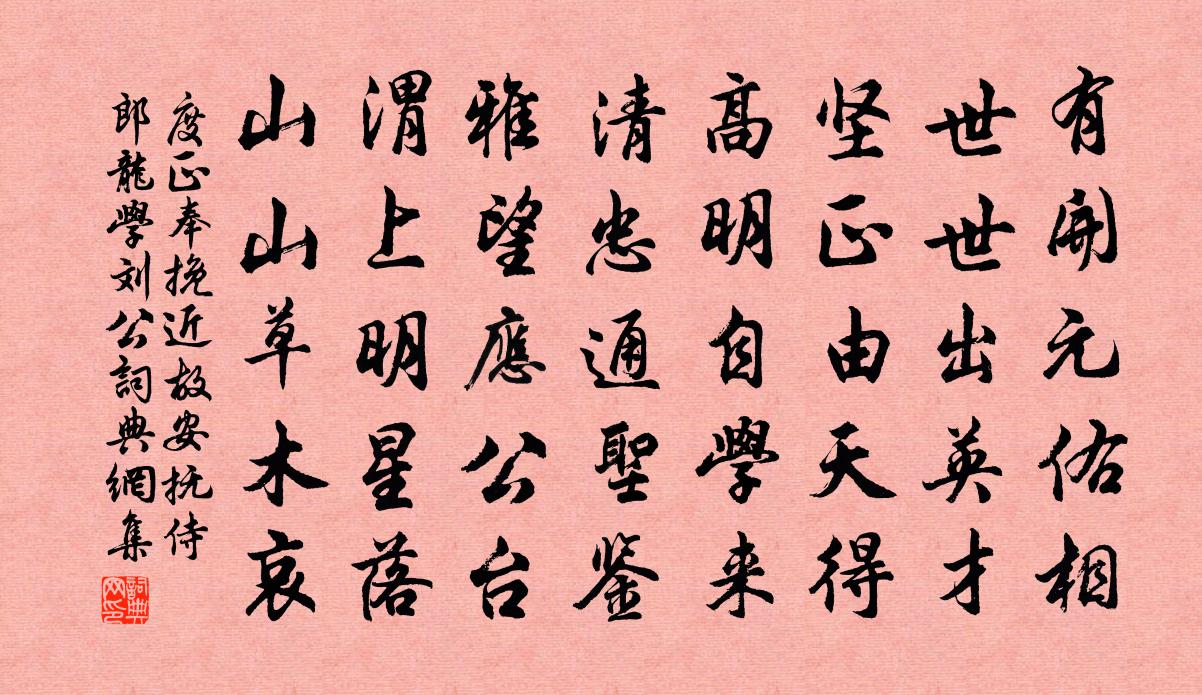 有開元佑相
世世出英才
坚正由天得
高明自學来
清忠通聖鉴
雅望應公台
渭上明星落
山山草木哀
度正奉挽近故安抚侍
郎龍學刘公詞典網集
詞典網印